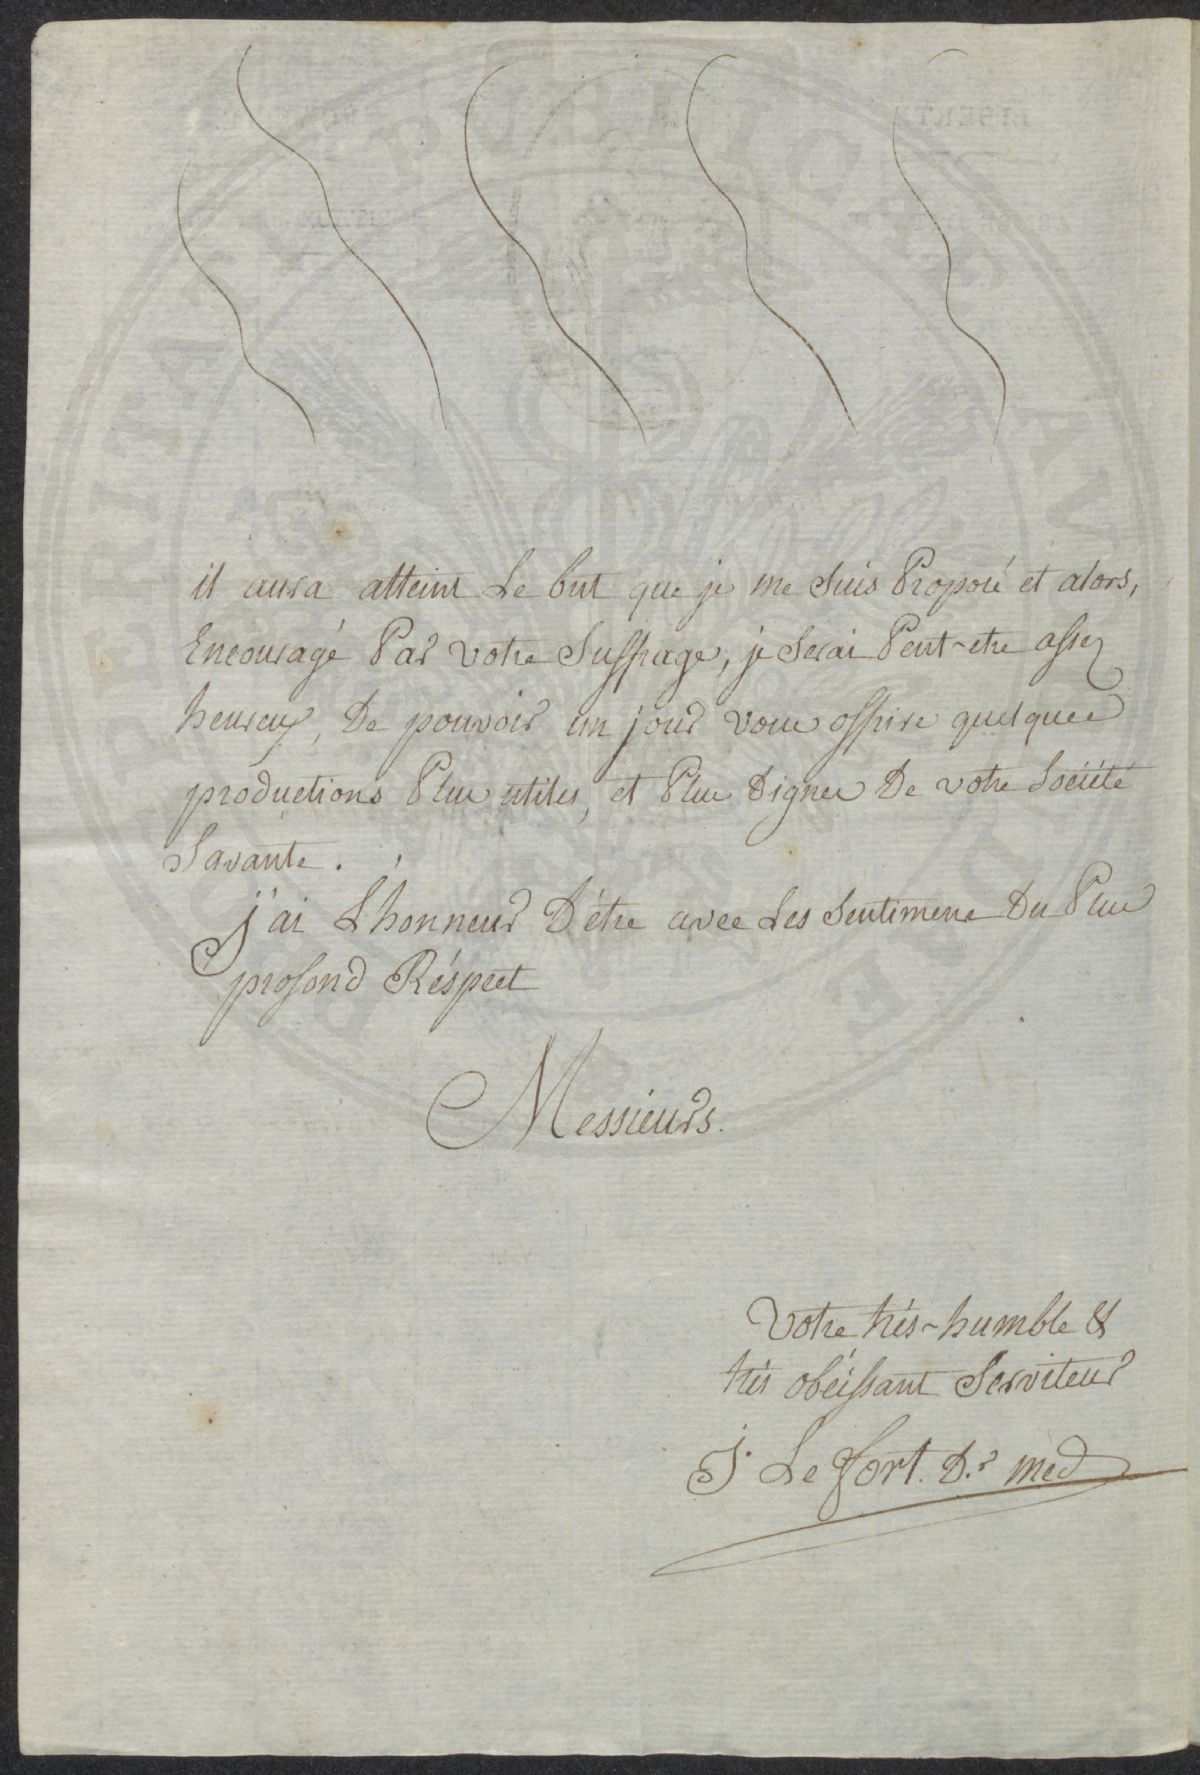 il aura atteint Le but que je me Suis Proposé et alors,
Encouragé Par votre Suffrage, je Serai Peut-etre assez
heureux, De pouvoir un jour vous offrire quelques
productions Plus utiles, et Plus Dignes De votre Société
Savante.
j'ai L'honneur D'étre avec Les Sentimens Du Plus
profond Réspect
Messieurs.
Votre trés-humble &
trés obéissant Serviteur
J. Le fort. D.r med